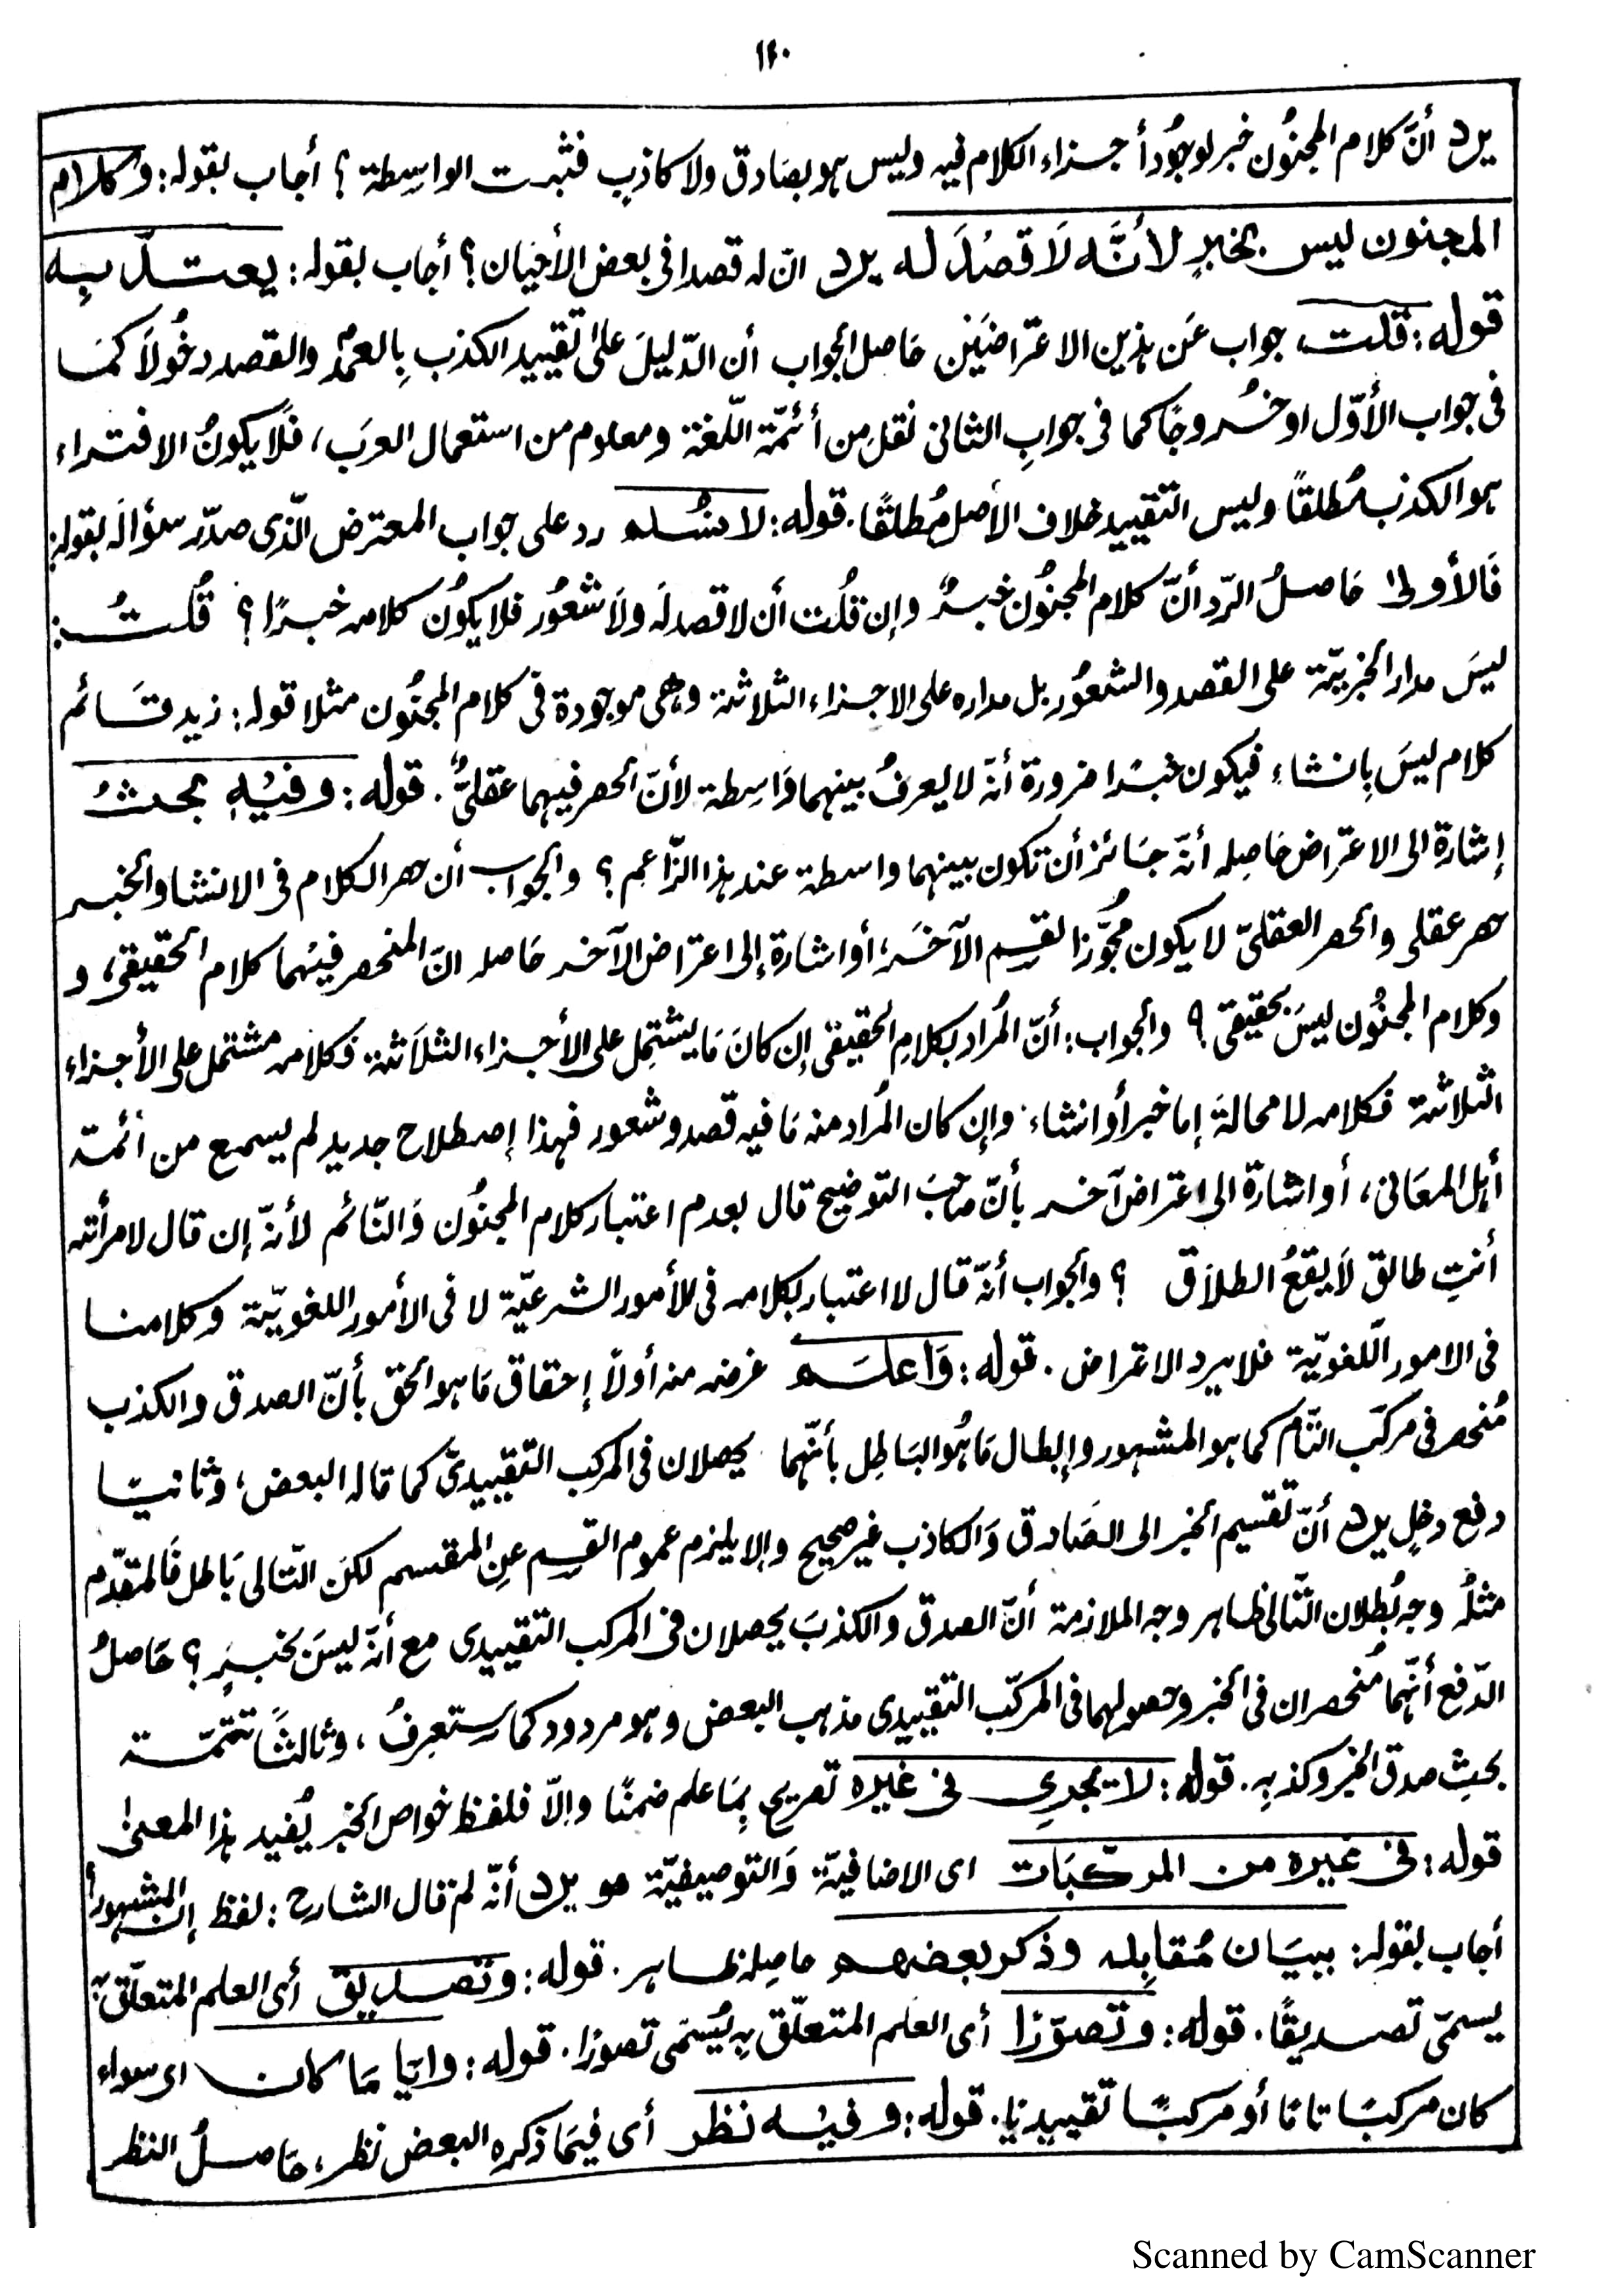 ١٢٠
يرد أنَّ كلام المجنُون خبر لوجُود أجزاء الكلام فيه وليس هو بصَادق ولا كاذب فثبرت الواسِطة ؟ أجاب بقوله: وكلام
المجنون ليس بخبرٍ لأنَّه لَا قصْدَ له يرد انّ له قصدا فى بعض الأحيَان؟ أجاب بقوله: يعتدّ بِه
قوله: قلت جواب عَن هذين الاعتراضَين حَاصل الجواب أن الدّليلَ علىٰ تقييد الكذب بِالعمْد والقصد دخُولاً كمَا
فى جواب الأوّل او خُروجًا كما فى جوابِ الثانى نقل من أئمّة اللّغة ومعلوم من استعمال العرَب، فَلَا يكونُ الافتراء
هو الكذب مُطلقًا وليس التقييد خلاف الأصل مُطلقًا. قوله: لا نسُلم رد على جواب المعترض الّذى صدّر سؤاله بقوله:
فَالأولىٰ حَاصلُ الرّد أنّ كلام المجنُون خبرٌ وإن قلُت أن لا قصد لَه ولَا شعُور فلا يكُون كلامه خبرًا ؟ قُلتُ:
ليسَ مدار الخبريّة على القصد والشعُور بل مداره على الاجزاء الثلاثة وهى موجودة فى كلام المجنُون مثلا قوله: زيد قَائم
كلام ليسَ بِانشاء فيكون خبرًا ضرورة أنّه لا يعرفُ بينهما وَاسِطة لأنّ الحصر فيهما عقلىٌّ. قوله: وفيْهِ بحثُ
إشارة الى الاعتراض حَاصِله أنّه جَائز أن تكون بينهما واسطة عند هذا الزّاعم ؟ والجواب أن حصر الكلام فى الانشا والخبر
حصر عقلى والحصر العقلىّ لا يكون مُجوّزا لقسم الآخَر، أو اشارة إلى اعتراض الآخر حَاصله انّ المنحصر فيهُما كلام الحقيقى، و
وكلام المجنُون ليسَ بحقيقى ؟ والجواب: أنّ المُراد بكلامِ الحقيقى إن كانَ مَا يشتمِل على الأجزاء الثلاَثة فكلامه مشتمل على الأجزاء
الثلاثة فكلامه لا محالةَ إما خبر أو انشاء وإن كان المُراد منه مَا فيه قصد وشعور فهذا إصطلاح جديد لم يسمع من ائمة
أهل المعَانى، أو اشارة الى اعتراض آخر بأنّ صَاحبَ التوضيح قال بعدم اعتبار كلام المجنُون وَالنّائم لأنّه إن قال لامرأته
أنتِ طالق لَا يقعُ الطلاَق ؟ والجواب أنّه قال لا اعتبار بكلامه فى الأمور الشرعيّة لا فى الأمور اللغويّة وكلامنا
فى الامور اللّغويّة فلا يرد الاعتراض. قوله: وَاعلَم غرضه منه أولاً إحقاق مَا هو الحق بأنّ الصدق والكذب
مُنحصر فى مركّب التّام كما هو المشهور وإبطال مَا هُو البَاطِل بأنّهما يحصلان فى المركب التقييدىّ كما قاله البعض، وثانيًا
دفع دخلٍ يرد أنّ تقسيم الخبر الى الصَادق وَالكاذب غير صحيح وإلا يلزم عموم القسِم عنِ المقسم لكن التّالى بَاطل فَالمقدّم
مثلُه وجه بُطلان التّالى ظاهر وجه الملازمة أنّ الصدق والكذبَ يحصلان فى المركب التقييدى مع أنّه ليسَ بخبرٍ ؟ حَاصلُ
الدّفع أنّهما مُنحصران فى الخبر وحصولهما فى المركّب التقييدى مذهب البعض وهو مردود كما ستعرِفُ، وثالثًا تتمّة
بحثِ صدق الخبر وكذبِه. قوله: لا تجرِى فى غيره تصريح بمَا علم ضمنًا وإلاّ فلفظ خواص الخبر يُفيد هذا المعنىٰ
قوله: فى غيره من المركّبَات اى الاضافيّة وَالتوصيفيّة هو يرد أنّه لم قال الشارح: لفظ إن المشهور؟
أجاب بقوله: ببيَان مُقابِله وذكر بعضهم حاصِله ظاهر. قوله: وتصديق أى العلم المتعلّق به
يسمّى تصديقًا. قوله: وتصوّرا أى العلم المتعلّق بِه يُسمّى تصورًا. قوله: وايّا مَا كان اى سواء
كان مركبًا تامًا أو مركبًا تقييديًا. قوله: وفيْه نظر أى فيمَا ذكره البعض نظر، حَاصلُ النظر
Scanned by CamScanner